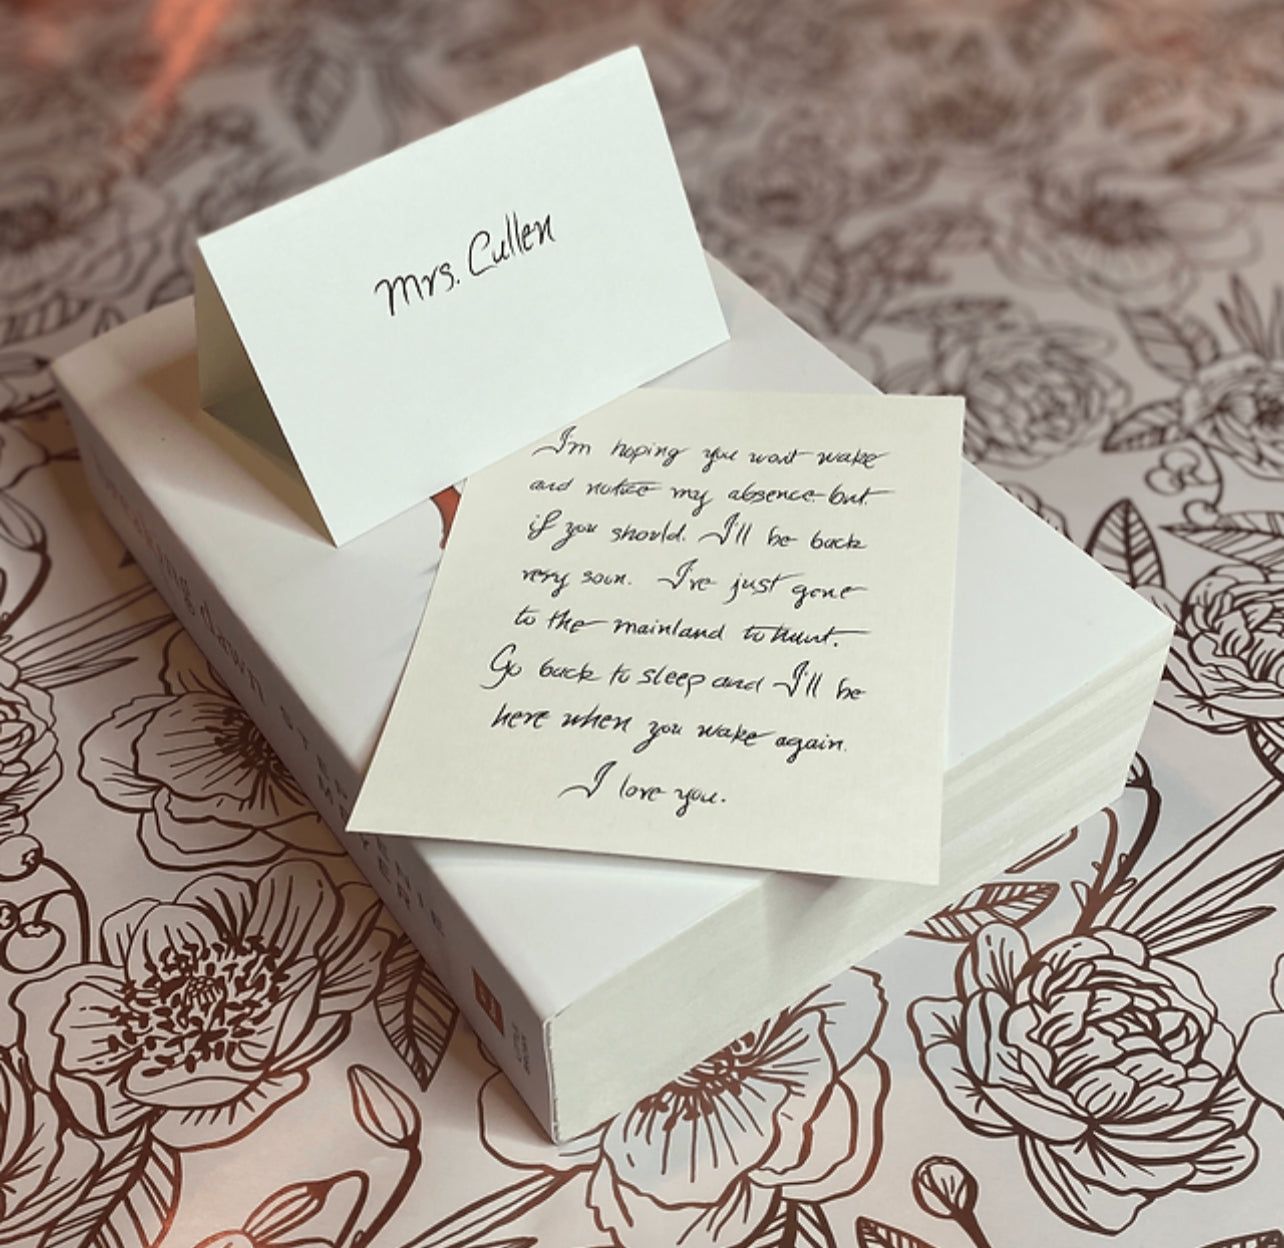 Mrs. Cullen
I'm hoping you won't wake
and notice my absence but
if you should. I'll be back
very soon. I've just gone
to the mainland to hunt.
Go back to sleep and I'll be
here when you wake again.
I love you.
breaking dawn
STEPHENIE
MEYER